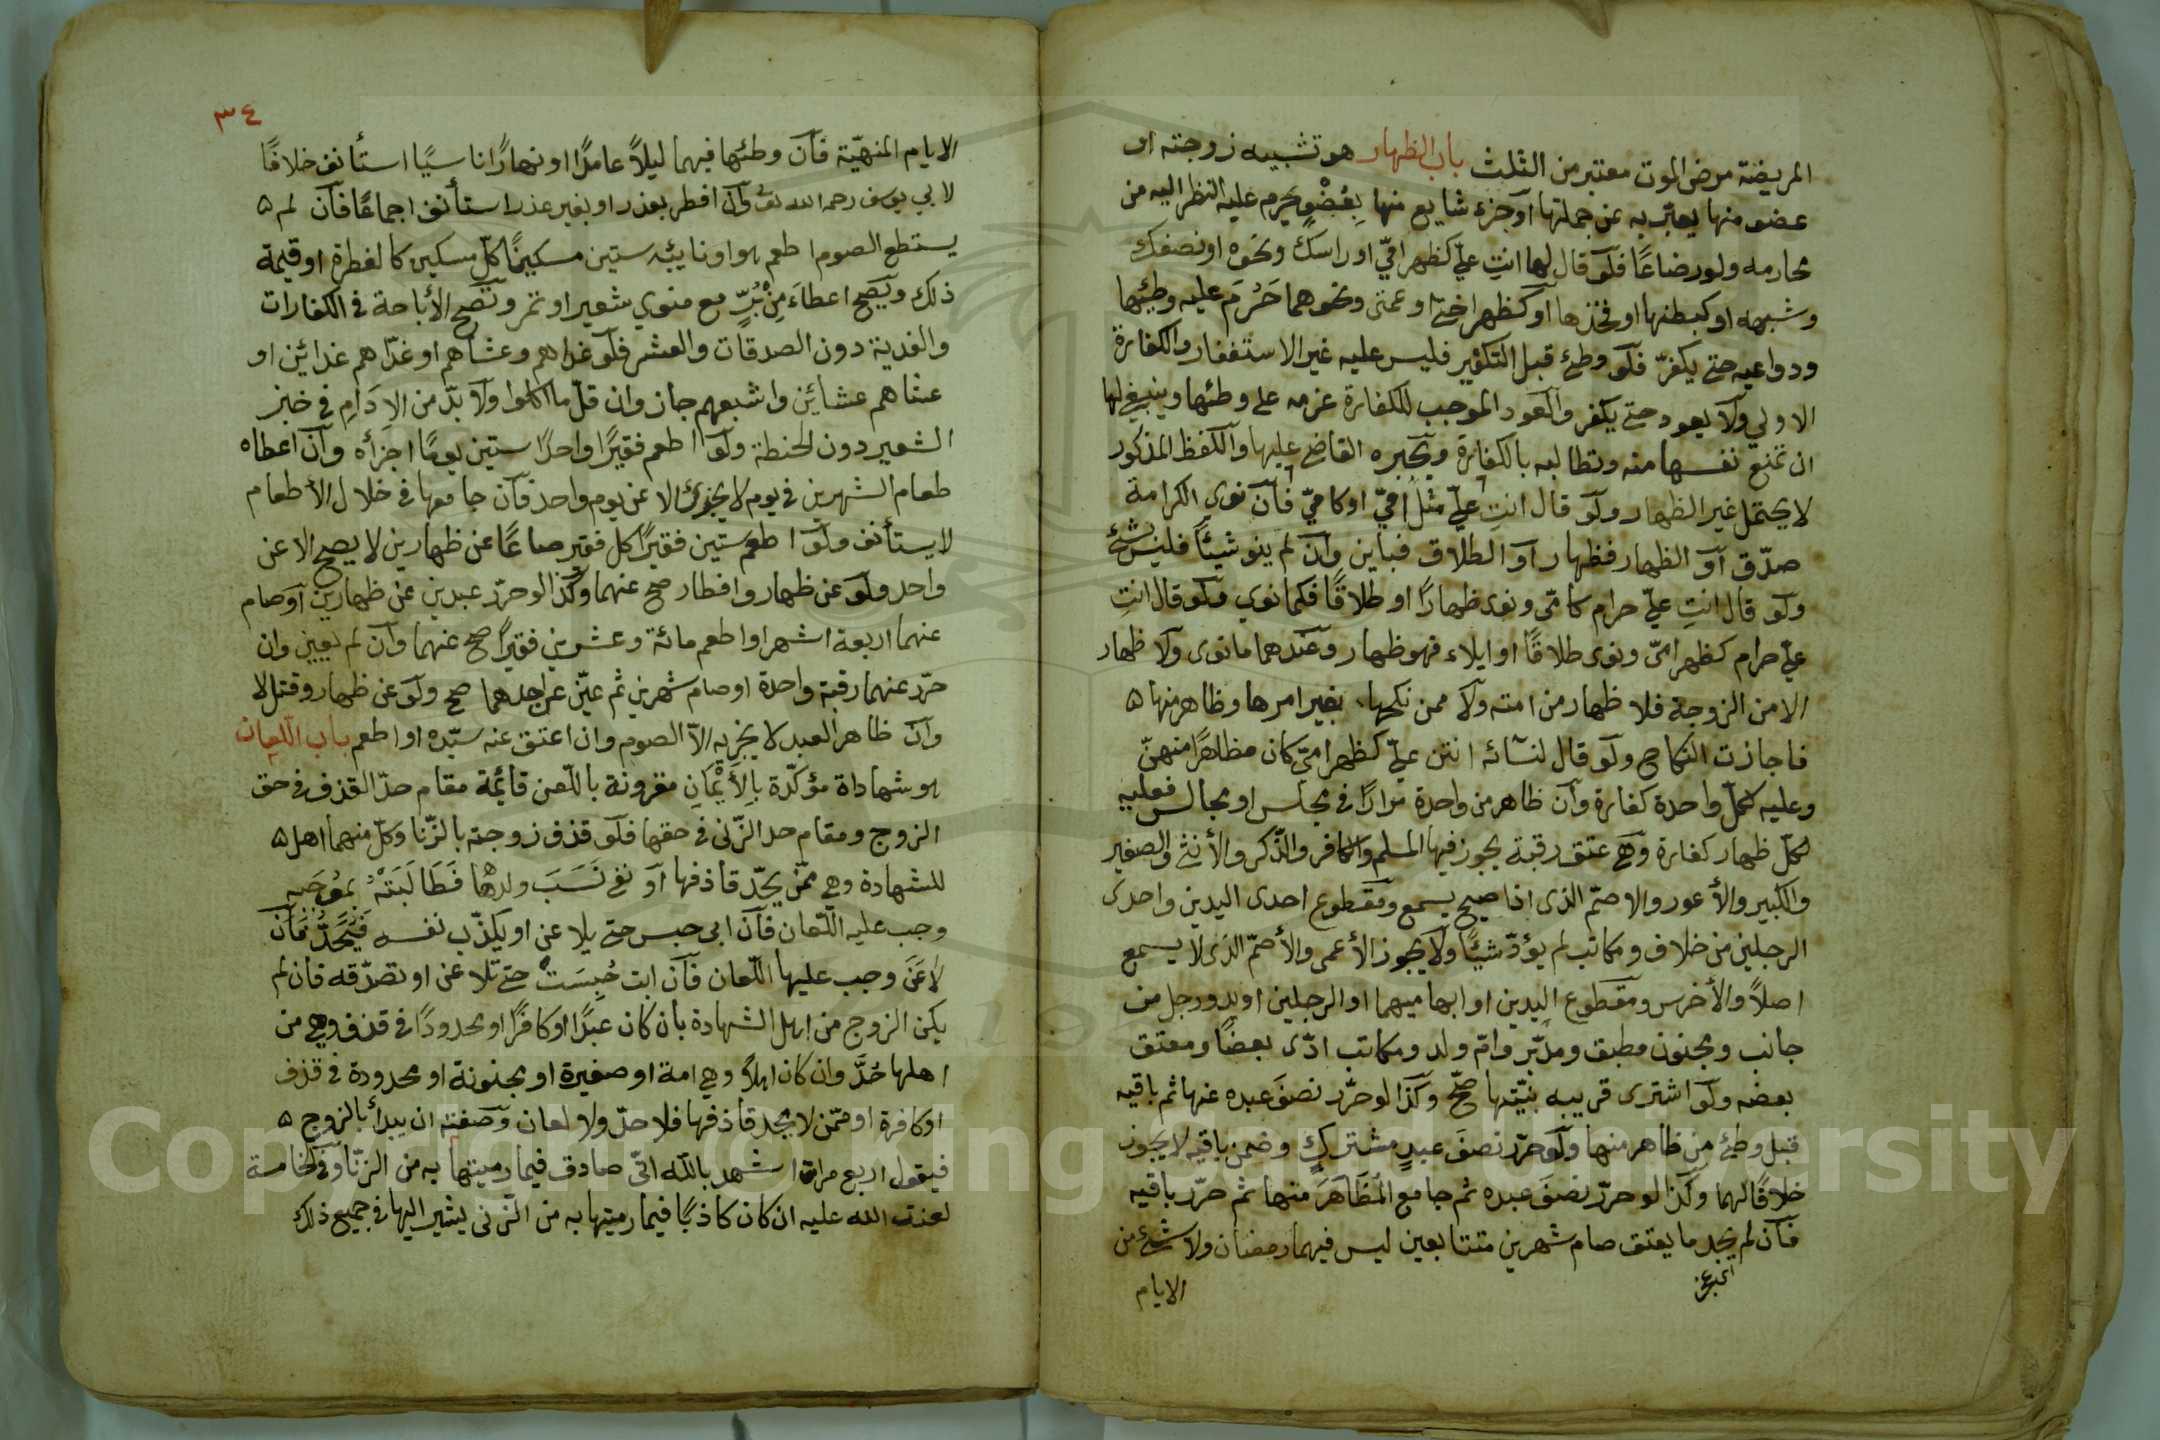 المريضة مرض الموت معتبر من الثلث باب الظهار هو تشبيه زوجته او
عضو منها يعبّر به عن جملتها او جزء شايع منها بِعُضْوٍ يحرم عليه النظر اليه من
محارمه ولو رضاعًا فلو قال لها انتِ عليّ كظهر امّي او راسكِ ونحوه او نصفك
وشبهه او كبطنها او فخذها او كظهر اختي او عمتى ونحوهما حَرُمَ عليه وطئها
ودواعيه حتى يكفّر فلو وطئ قبل التكفير فليس عليه غير الاستغفار والكفارة
الاولي ولا يعود حتى يكفر والعود الموجب للكفارة عزمه على وطئها وينبغي لها
ان تمنع نفسها منه وتطالبه بالكفارة ويجبره القاضي عليها واللفظ المذكور
لا يحتمل غير الظهار ولو قال انتِ عليّ مثل امّي او كامّي فان نوى الكرامة
صدّق او الظهار فظهار او الطلاق فباين وان لم ينو شيئًا فليس بشئ
ولو قال انتِ عليّ حرام كامّى ونوى ظهارًا او طلاقًا فكما نوي ولو قال انتِ
عليّ حرام كظهر امّى ونوى طلاقًا او ايلاء فهو ظهار وعندهما ما نوى ولا ظهار
الا من الزوجة فلا ظهار من امته ولا ممن نكحها بغير امرها وظاهر منها ه
فاجازت النكاح ولو قال لنسائه انتن عليّ كظهر امّي كان مظاهرًا منهنّ
وعليه لكلّ واحدة كفارة وان ظاهر من واحدة مرارًا في مجلس او مجالس فعليه
لكلّ ظهار كفارة وهي عتق رقبة يجوز فيها المسلم والكافر والذّكر والأنثى والصغير
والكبير والأعور والاصمّ الذى اذا صيح يسمع ومقطوع احدى اليدين واحدى
الرجلين من خلاف ومكاتب لم يؤدّ شيئًا ولا يجوز الأعمى والأصمّ الذى لا يسمع
اصلاً والأخرس ومقطوع اليدين او ابهاميهما او الرجلين او يد ورجل من
جانب ومجنون مطبق ومدبّر وامّ ولد ومكاتب ادّى بعضًا ومعتق
بعضه ولو اشترى قريبه بنيّتها صحّ وكذا لو حرّر نصفَ عبده عنها ثم باقيه
قبل وطئ من ظاهر منها ولو حرّر نصفَ عبدٍ مشتركٍ وضمن باقيه لا يجوز
خلافًا لهما وكذا لو حرّر نصفَ عبده ثم جامع المُظَاهَرَ منها ثم حرّر باقيه
فان لم يجد ما يعتق صام شهرين متتابعين ليس فيهما رمضان ولا شئ من
الايام
٣٤
الايام المنهيّة فان وطئها فيهما ليلاً عامدًا او نهارًا ناسيًا استأنف خلافًا
لابي يوسف رحمه الله تعالى وان افطر بعذر او بغير عذر استأنف اجماعًا فان لم ه
يستطع الصوم اطعم هو او نايبه ستين مسكينًا كلّ مسكين كالفطرة او قيمة
ذلك ويصح اعطاءَ مِنْ بُرٍّ مع منوي شعير او تمر وتصح الأباحة في الكفارات
والفدية دون الصدقات والعشر فلو غداهم وعشاهم او غدّاهم غدائين او
عشاهم عشائين واشبعهم جاز وان قلّ ما اكلوا ولا بدّ من الاِدَامِ في خبز
الشعير دون الحنطة ولو اطعم فقيرًا واحدًا ستين يومًا اجزأه وان اعطاه
طعام الشهرين في يوم لا يجزئ الا عن يوم واحد فان جامعها في خلال الأطعام
لا يستأنف ولو اطعم ستين فقيرًا كل فقير صاعًا عن ظهارين لا يصح الا عن
واحد ولو عن ظهار وافطار صح عنهما وكذا لو حرّر عبدين عن ظهارين او صام
عنهما اربعة اشهر او اطعم مائة وعشرين فقيرًا صح عنهما وان لم يعيّن وان
حرّر عنهما رقبة واحدة او صام شهرين ثم عيّن عن احدهما صح ولو عن ظهار وقتل لا
وان ظاهر العبد لا يجزيه الّا الصوم وان اعتق عنه سيّده او اطعم باب اللّعان
هو شهاداة مؤكّدة بِالاَيْمَانِ مقرونة باللّعن قائمة مقام حدّ القذف في حق
الزوج ومقام حد الزّنى في حقها فلو قذف زوجته بالزّنا وكلّ منهما اهل ه
للشهادة وهي ممّن يحدّ قاذفها او نفى نَسَبَ ولدها فَطَالَبَتْهُ بموجَبِهِ
وجب عليه اللّعان فان ابى حبس حتى يلاعن او يكذّب نفسه فَيُحَدُّ فان
لاعَنَ وجب عليها اللّعان فان ابت حُبِسَت حتى تلاعن او تصدّقه فان لم
يكن الزوج من اهل الشهادة بان كان عبدًا او كافرًا او محدودًا في قذف وهي من
اهلها حُدَّ وان كان اهلاً وهي امة او صغيرة او مجنونة او محدودة في قذف
او كافرة او ممّن لا يحد قاذفها فلا حدّ ولا لعان وصفته ان يبدأ بالزوج ه
فيقول اربع مرات اشهد باللّه انّى صادق فيما رميتها به من الزّنا وفي الخامسة
لعنت الله عليه ان كان كاذبًا فيما رميتها به من الزّنى يشير اليها في جميع ذلك
Copyright © King Saud University